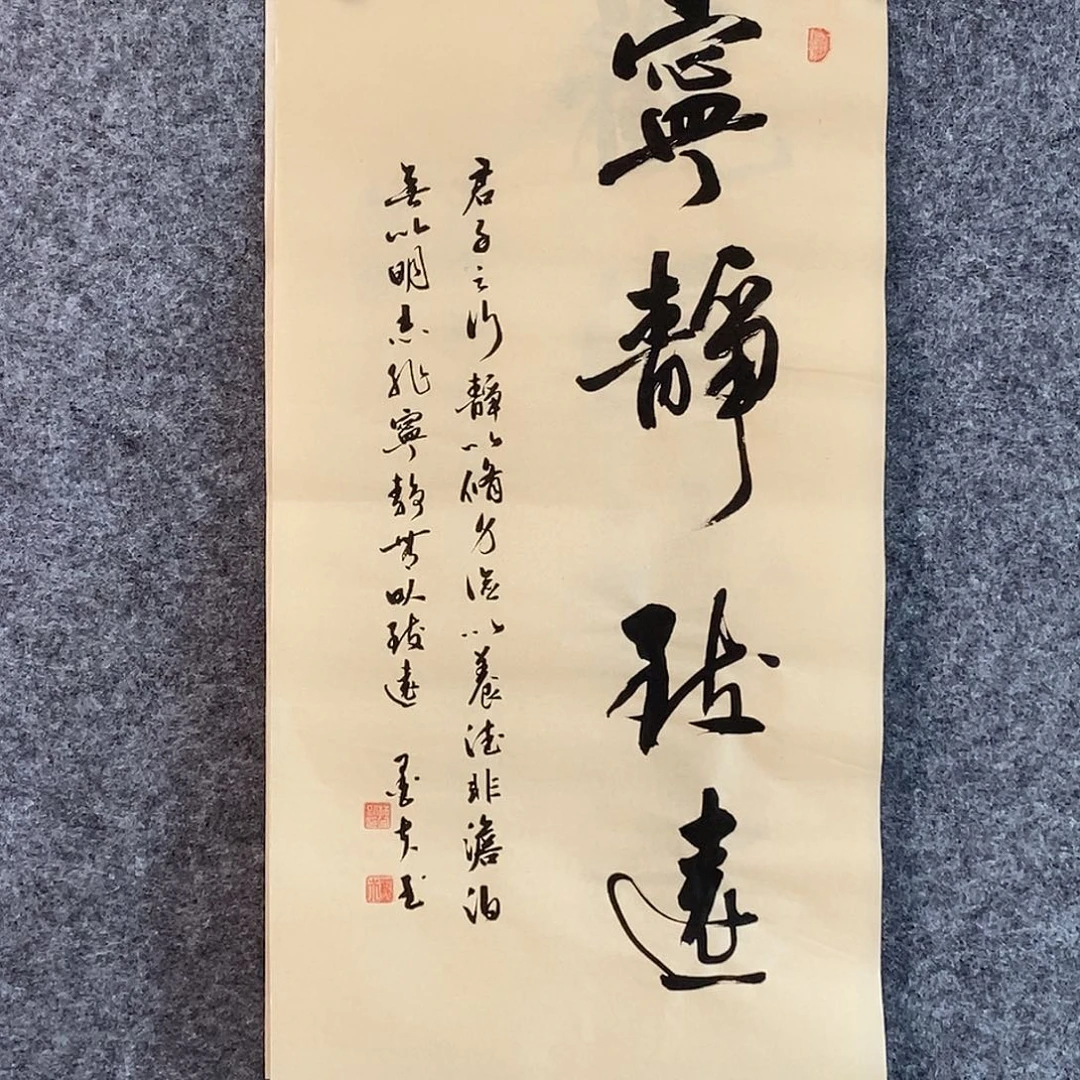 寧靜致遠
君子之行靜以脩身澹以養德非澹泊
無以明志非寧靜無以致遠
墨夫书